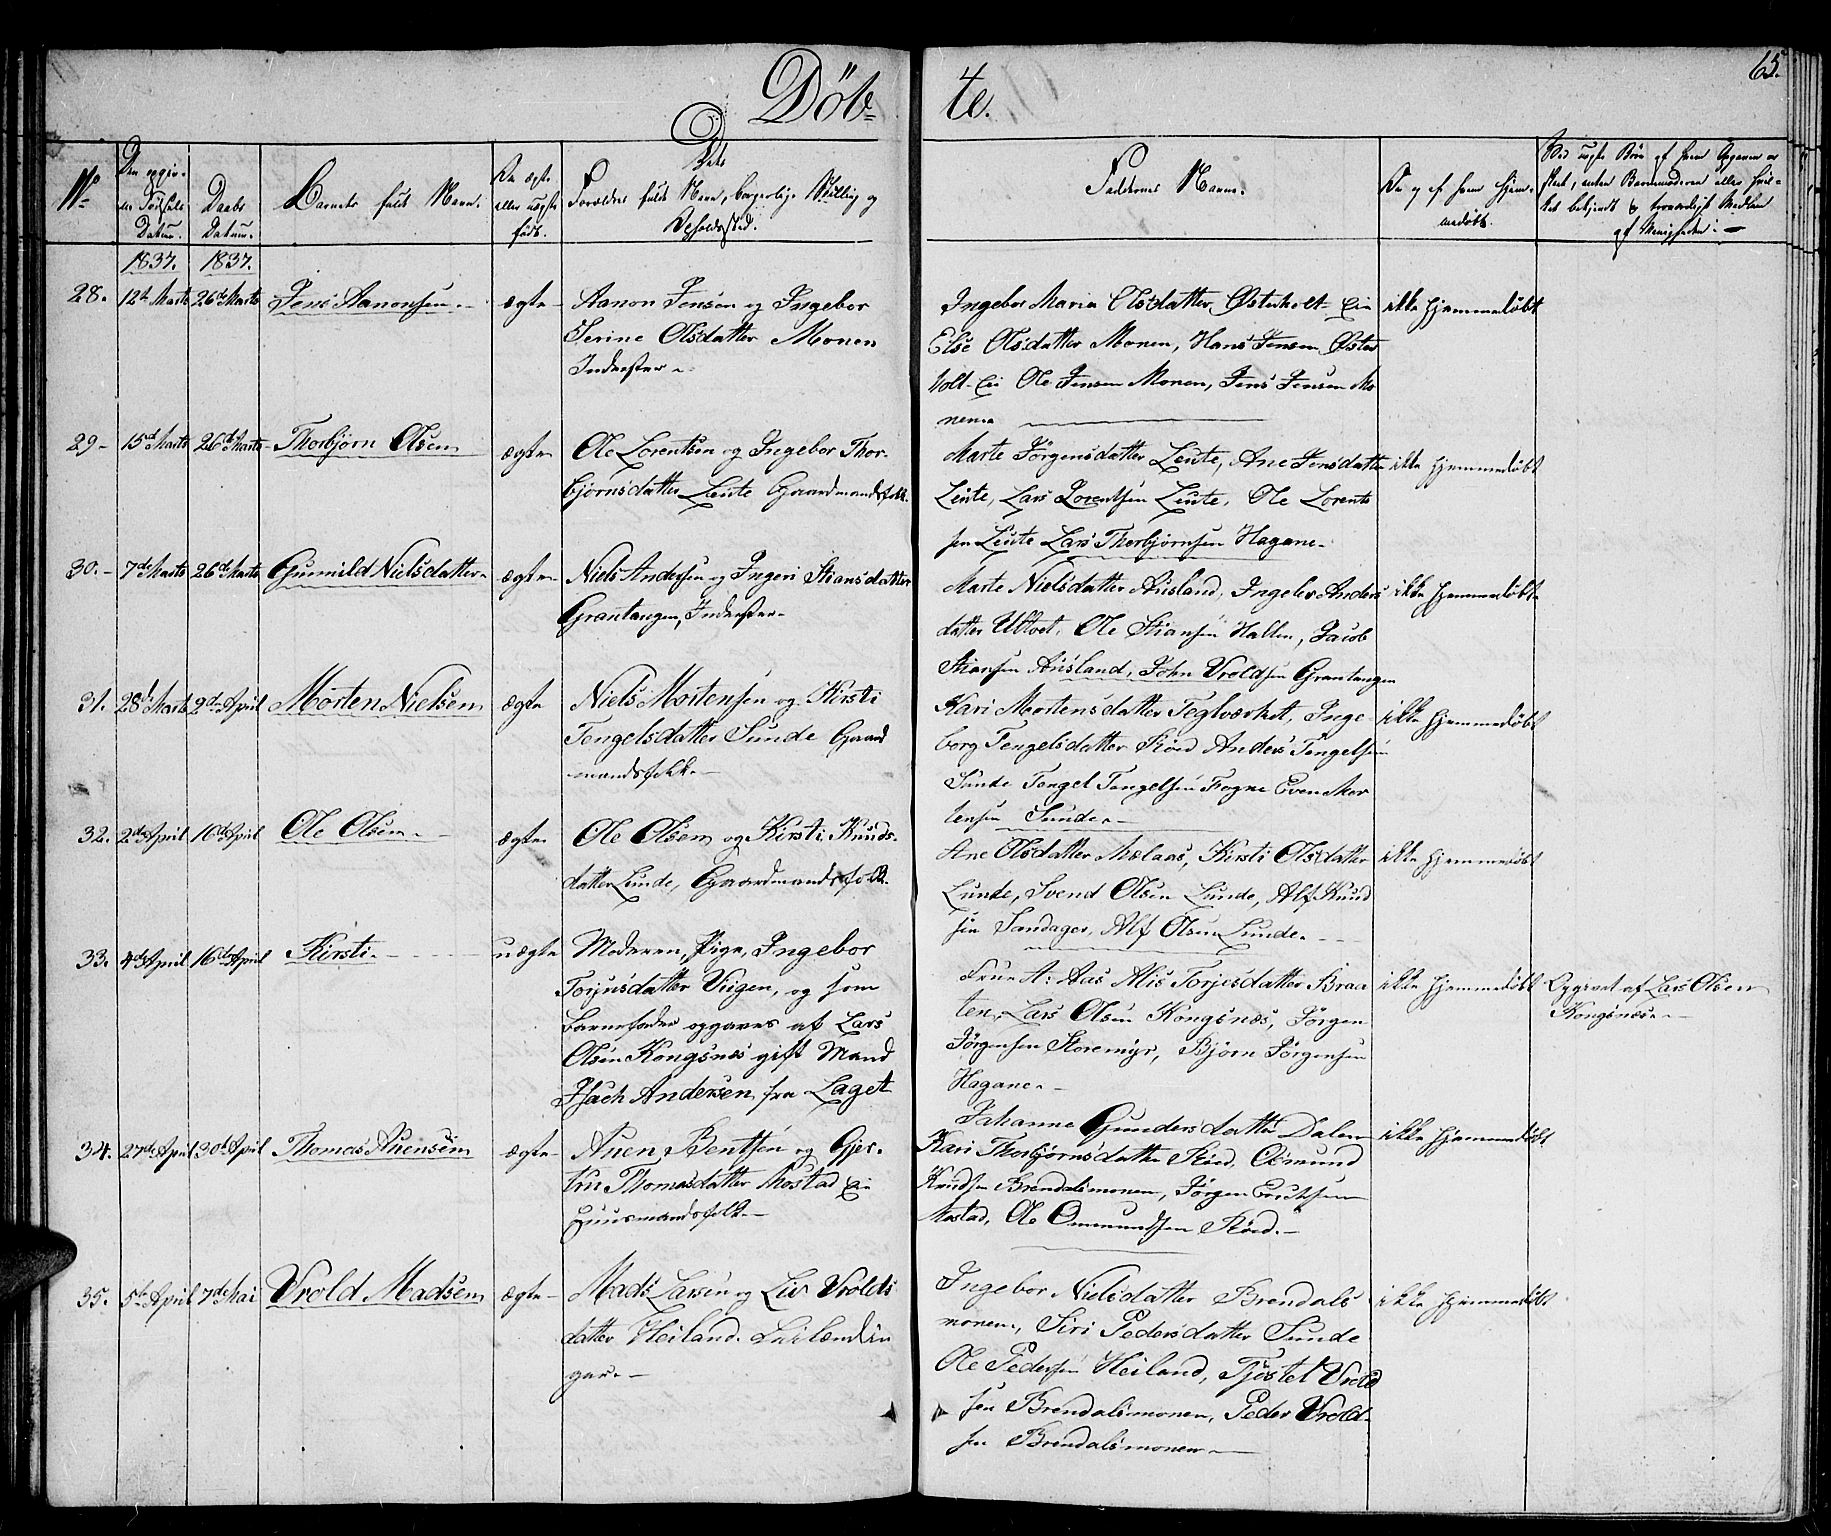 Døb=
te.
65.
No
Den opgiv-
ne Fødsels
Datum.
Daabs
Datum.
Barnets fulde Navn.
Om ægte
eller uægte
født.
Dets
Forældres fulde Navn, borgerlige Stilling og
Opholdssted.
Faddernes Navne.
Om og af hvem hjem-
medøbt.
Ved uægte Børn af hvem Opgaven er
skeet, enten Barnmoderen eller hvil-
ket bekjendt & troværdigt Medlem
af Menigheden.
1837. 1837.
28. 12te Marts 26de Marts Jens Aanonsen. ægte
Aanon Jensen og Ingebor
Serine Olsdatter Monen
Inderster.
Ingebor Maria Olsdatter Østerholt Ein
Else Olsdatter Monen, Hans Jensen Øster
holt Ei Ole Jensen Monen, Jens Jensen Mo
nen.
ikke hjemmedøbt
29 15de Marts 26de Marts Thorbjørn Olsen ægte
Ole Lorentsen og Ingebor Thor-
bjørnsdatter Lente Gaardmandsfolk.
Marte Jörgensdatter Lente, Ane Jensdatter
Lente, Lars Lorentsen Lente, Ole Lorent
sen Lente Lars Thorbjørnsen Hagane.
ikke hjemmedøbt
30. 7de Marts 26de Marts Gunnild Nielsdatter ægte
Niels Andersen og Ingeri Stiansdatter
Grantangen, Inderster.
Marte Nielsdatter Ausland, Ingeber Anders
datter Ulltvet, Ole Stiansen Hallen, Jacob
Stiansen Ausland, John Vroldsen Grantangen
ikke hjemmedøbt
31. 28de Marts 2de April Morten Nielsen ægte
Niels Mortensen og Kirsti
Tengelsdatter Sunde Gaard
mandsfolk.
Kari Mortensdatter Teglværket, Inge
borg Tengelsdatter Röed Anders Tengelsen
Sunde Tengel Tengelsen Fogne Even Mor
tensen Sunde.
ikke hjemmedøbt
32. 2de April 16de April Ole Olsen. ægte
Ole Olsen og Kirsti Knuds-
datter Lunde, Gaardmandsfolk.
Ane Olsdatter Mælaas, Kirsti Olsdatter
Lunde, Svend Olsen Lunde, Alf Knud
sen Sandager, Alf Olsen Lunde.
ikke hjemmedøbt
33. 4de April 16de April Kirsti. uægte
Moderen, Pige, Ingebor
Torjusdatter Viigen, og som
Barnefader opgaves af Lars
Olsen Kongsnæs gift Mand
Isach Andersen fra Laget
Frue A: Aas Alis Torjesdatter Braa
ten, Lars Olsen Kongsnæs, Jörgen
Jörgensen Storemyr, Björn Jörgensen
Hagane.
ikke hjemmedøbt
Opgivet af Lars Olsen
Kongsnæs.
34. 27de April 30de April Thomas Anensen ægte
Anen Bentsen og Gjer-
tru Thomasdatter Mostad Ei
Huusmandsfolk.
Johanne Gundersdatter Dalen
Kari Thorbjørnsdatter Röed, Osmund
Knudsen Brendalsmonen, Jörgen Erichsen
Mostad, Ole Ommundsen Röed.
ikke hjemmedøbt
35. 5te April 7de Mai Vrold Madsen ægte
Mads Larsen og Liv Vrolds
datter Heiland. Leilændin
ger.
Ingebor Nielsdatter Brendals
monen, Siri Pedersdatter Sunde
Ole Pedersen Heiland, Tjöstel Vrold
sen Brendalsmonen, Peder Vrold-
sen Brendalsmonen
ikke hjemmedøbt